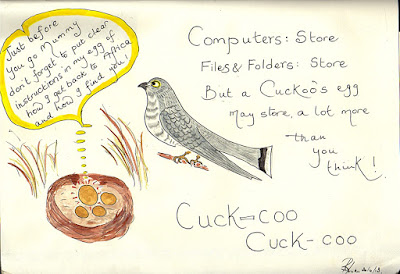 Just before
you go Mummy
don't forget to put clear
instructions in my egg of
how I get back to Africa
and how I find you!
Computers: Store
Files & Folders: Store
But a Cuckoo's egg
may store, a lot more
than
you
think!
Cuck-coo
Cuck-coo